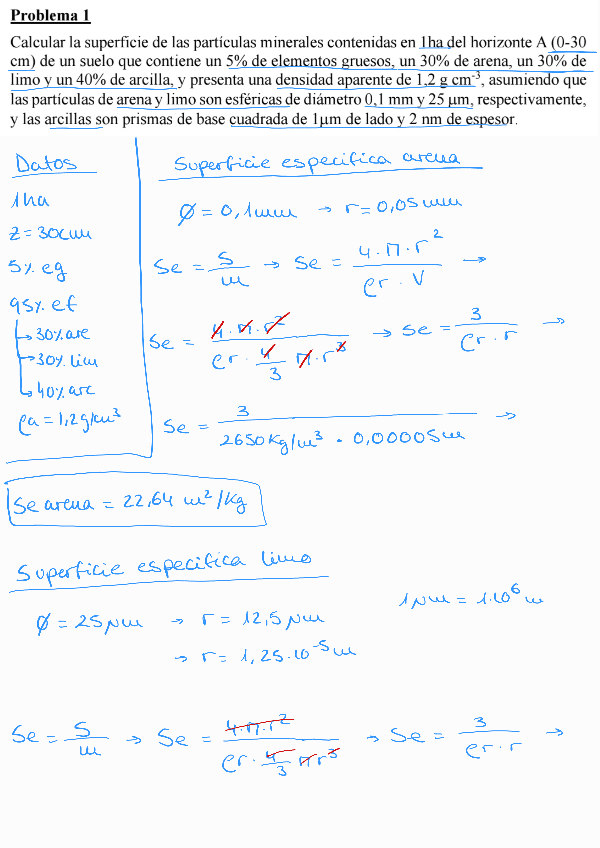 Problema 1
Calcular la superficie de las partículas minerales contenidas en 1ha del horizonte A (0-30
cm) de un suelo que contiene un 5% de elementos gruesos, un 30% de arena, un 30% de
limo y un 40% de arcilla, y presenta una densidad aparente de 1,2 g cm⁻³, asumiendo que
las partículas de arena y limo son esféricas de diámetro 0,1 mm y 25 µm, respectivamente,
y las arcillas son prismas de base cuadrada de 1µm de lado y 2 nm de espesor.
Datos
1ha
z = 30cm
5% eg
95% ef
→ 30% are
→ 30% lim
→ 40% arc
ρa = 1,2g/cm³
Superficie especifica arena
Ø = 0,1mm → r = 0,05mm
Se = S/m → Se = 4·π·r² / ρr · V →
Se = 4·π·r² / ρr · 4/3 π·r³ → Se = 3 / ρr · r →
Se = 3 / 2650Kg/m³ · 0,00005m →
Se arena = 22,64 m²/Kg
Superficie especifica limo
Ø = 25µm → r = 12,5µm
1µm = 1·10⁶ m
→ r = 1,25·10⁻⁵m
Se = S/m → Se = 4·π·r² / ρr · 4/3 πr³ → Se = 3 / ρr · r →